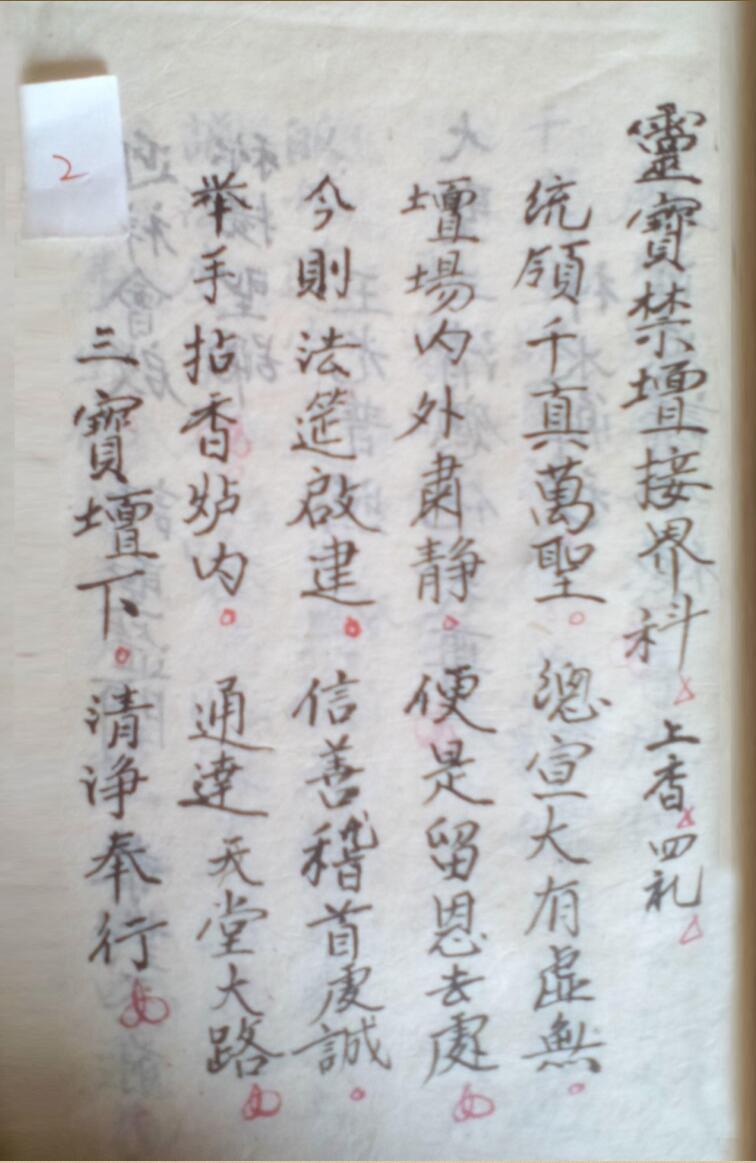 靈寶禁壇接界科 上香 四礼
統領千真萬聖。總宣大有虛無。
壇場內外肅静。便是留恩去處
今則法筵啟建。信善稽首虔誠。
举手拈香炉内。通達天堂大路
三寶壇下。清净奉行
2